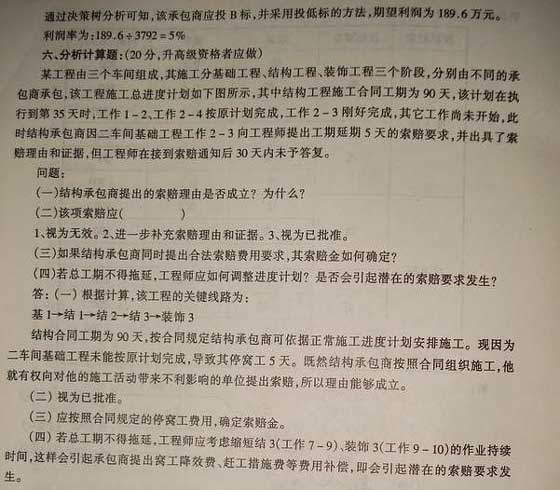 通过决策树分析可知,该承包商应投 B 标,并采用投低标的方法,期望利润为 189.6 万元。
利润率为:189.6÷3792=5%
六、分析计算题:(20 分,升高级资格者应做)
某工程由三个车间组成,其施工分基础工程、结构工程、装饰工程三个阶段,分别由不同的承
包商承包,该工程施工总进度计划如下图所示,其中结构工程施工合同工期为 90 天,该计划在执
行到第 35 天时,工作 1－2、工作 2－4 按原计划完成,工作 2－3 刚好完成,其它工作尚未开始,此
时结构承包商因二车间基础工程工作 2－3 向工程师提出工期延期 5 天的索赔要求,并出具了索
赔理由和证据,但工程师在接到索赔通知后 30 天内未予答复。
问题:
(一)结构承包商提出的索赔理由是否成立? 为什么?
(二)该项索赔应(　　　　)
1、视为无效。2、进一步补充索赔理由和证据。3、视为已批准。
(三)如果结构承包商同时提出合法索赔费用要求,其索赔金如何确定?
(四)若总工期不得拖延,工程师应如何调整进度计划? 是否会引起潜在的索赔要求发生?
答: (一) 根据计算,该工程的关键线路为:
基 1→结 1→结 2→结 3→装饰 3
结构合同工期为 90 天,按合同规定结构承包商可依据正常施工进度计划安排施工。现因为
二车间基础工程未能按原计划完成,导致其停窝工 5 天。既然结构承包商按照合同组织施工,他
就有权向对他的施工活动带来不利影响的单位提出索赔,所以理由能够成立。
(二) 视为已批准。
(三) 应按照合同规定的停窝工费用,确定索赔金。
(四) 若总工期不得拖延,工程师应考虑缩短结 3(工作 7－9)、装饰 3(工作 9－10)的作业持续
时间,这样会引起承包商提出窝工降效费、赶工措施费等费用补偿,即会引起潜在的索赔要求发
生。